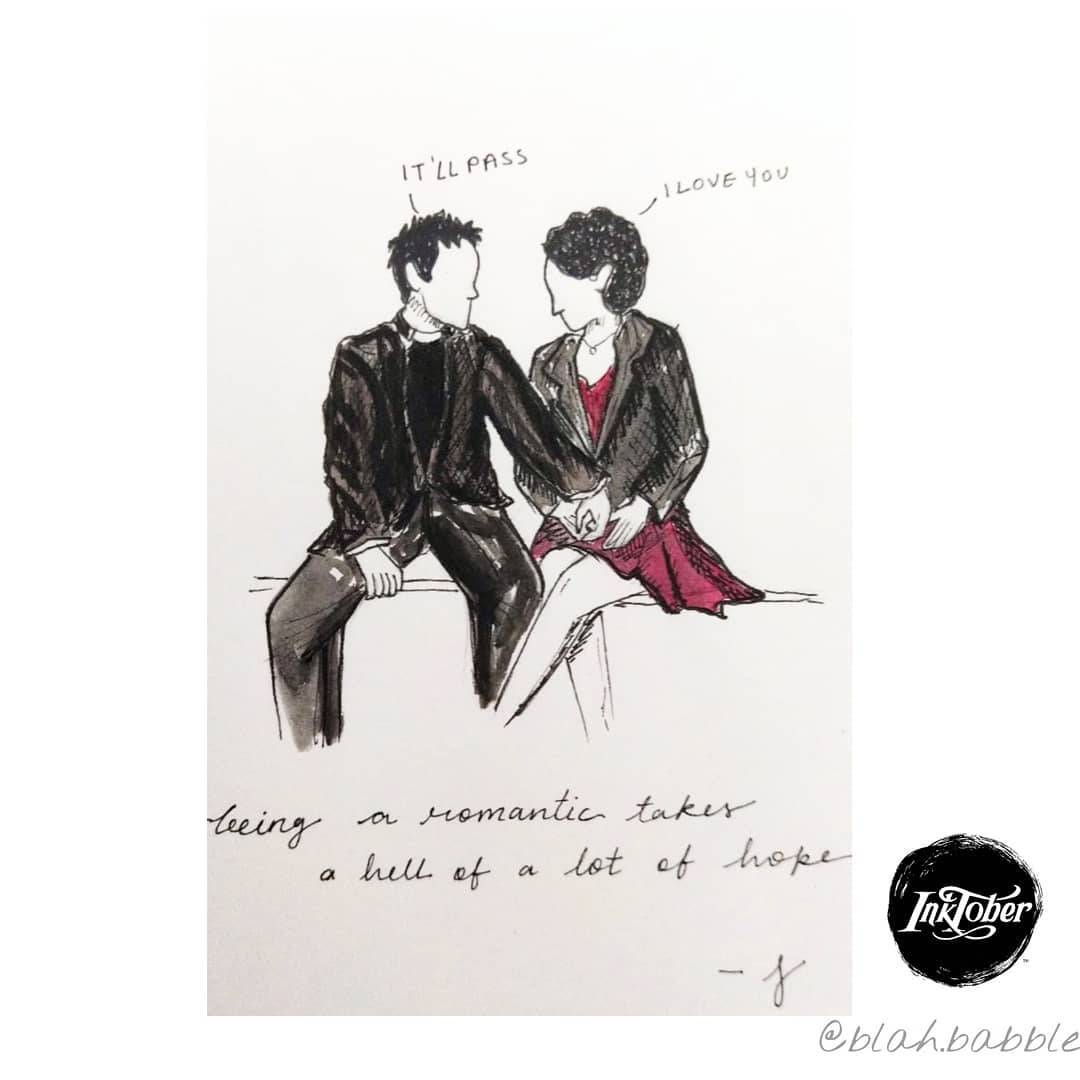 IT'LL PASS
I LOVE YOU
being a romantic takes
a hell of a lot of hope
- J
INKTOBER
@blah.babble